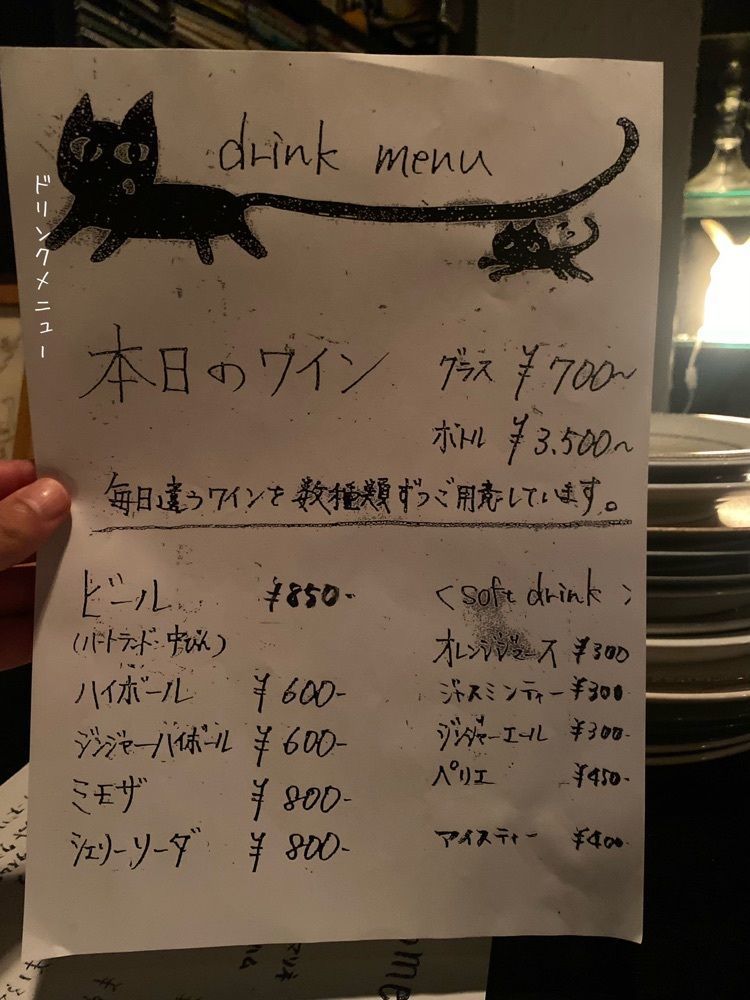 drink menu
ドリンクメニュー
本日のワイン
グラス ¥700〜
ボトル ¥3.500〜
毎日違うワインを数種類ずつご用意しています。
ビール ¥850-
(ハートランド 中びん)
ハイボール ¥600-
ジンジャーハイボール ¥600-
ミモザ ¥800-
シェリーソーダ ¥800-
<soft drink>
オレンジジュース ¥300
ジャスミンティー ¥300
ジンジャーエール ¥300-
ペリエ ¥450-
アイスティー ¥400